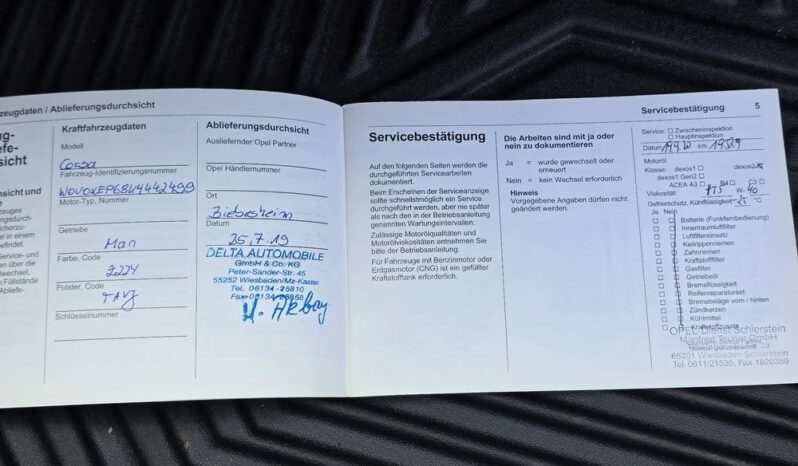 zeugdaten / Ablieferungsdurchsicht
Kraftfahrzeugdaten
Modell
Corsa
Fahrzeug-Identifizierungsnummer
Motor-Typ, Nummer
Getriebe
Man
Farbe, Code
Polster, Code
TAVJ
Schlüsselnummer
Ablieferungsdurchsicht
Ausliefernder Opel Partner
Opel Händlernummer
Ort
Biebesheim
Datum
25.7.19
DELTA AUTOMOBILE
GmbH & Co. KG
Peter-Sander-Str. 45
55252 Wiesbaden/Mz-Kastel
Tel. 06134-25810
Servicebestätigung 5
Servicebestätigung
Auf den folgenden Seiten werden die
durchgeführten Servicearbeiten
dokumentiert.
Beim Erscheinen der Serviceanzeige
sollte schnellstmöglich ein Service
durchgeführt werden, aber nie später
als nach den in der Betriebsanleitung
genannten Wartungsintervallen.
Zulässige Motorölqualitäten und
Motorölviskositäten entnehmen Sie
bitte der Betriebsanleitung.
Für Fahrzeuge mit Benzinmotor oder
Erdgasmotor (CNG) ist ein gefüllter
Kraftstofftank erforderlich.
Die Arbeiten sind mit ja oder
nein zu dokumentieren
Ja = wurde gewechselt oder
erneuert
Nein = kein Wechsel erforderlich
Hinweis
Vorgegebene Angaben dürfen nicht
geändert werden.
Service: Zwischeninspektion
Hauptinspektion
Datum km
Motoröl
Klasse: dexos1 dexos2
dexos1 Gen2
ACEA A3 B4 C3
Viskosität: W- 40
Gefrierschutz, Kühlflüssigkeit °C
Ja Nein
Batterie (Funkfernbedienung)
Innenraumluftfilter
Luftfiltereinsatz
Keilrippenriemen
Zahnriemen
Kraftstofffilter
Gasfilter
Getriebeöl
Bremsflüssigkeit
Reifenreparaturset
Bremsbeläge vorn / hinten
Zündkerzen
Kühlmittel
Kraftstoffzusatz
OPEL-Dienst Schierstein
65201 Wiesbaden-Schierstein
Tel. 0611/21535, Fax 1820389